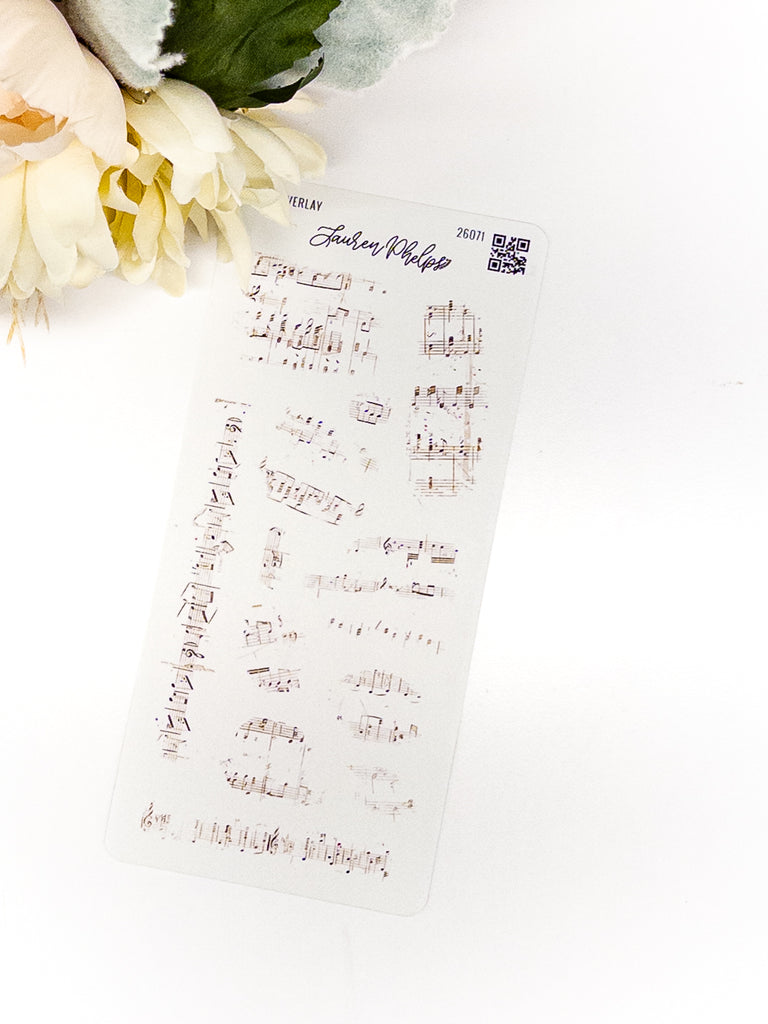 VERLAY
Lauren Phelps
26071